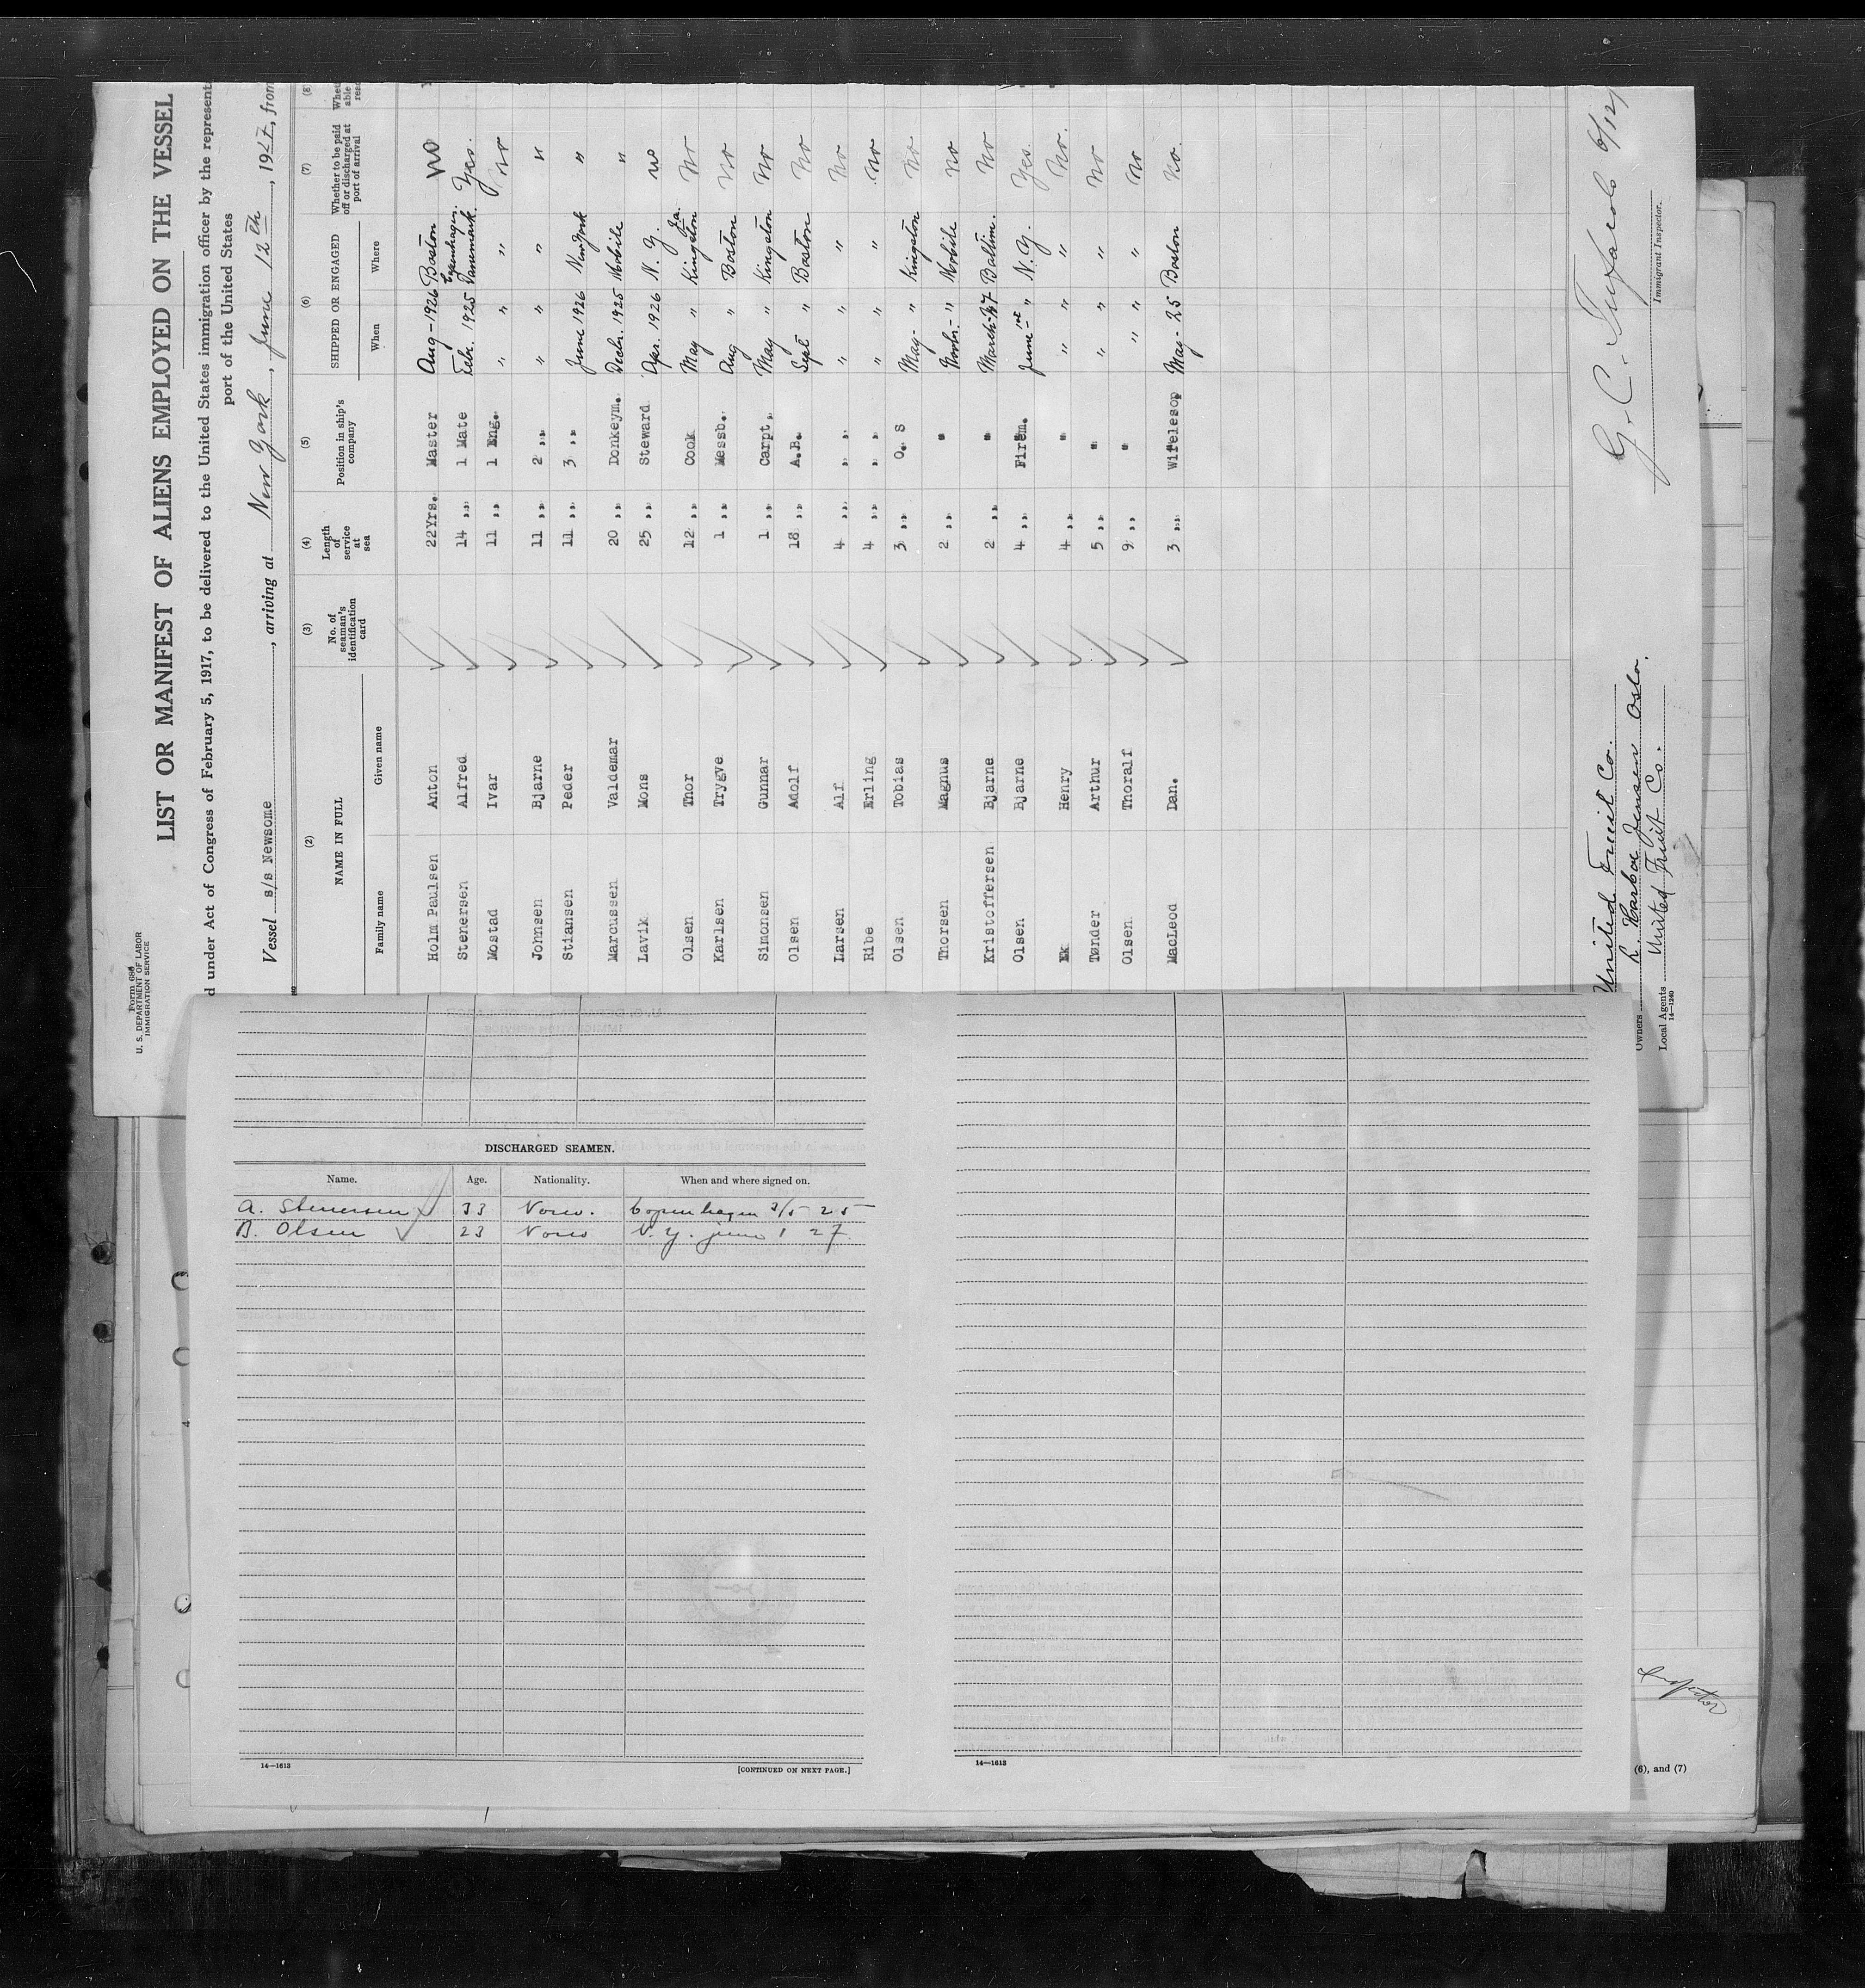 Form 689
U. S. DEPARTMENT OF LABOR
IMMIGRATION SERVICE
LIST OR MANIFEST OF ALIENS EMPLOYED ON THE VESSEL
d under Act of Congress of February 5, 1917, to be delivered to the United States immigration officer by the represent
port of the United States
Vessel s/s Newsome, arriving at New York, June 12th, 1927, from
(2) (3) (4) (5) (6) (7) (8)
NAME IN FULL No. of seaman's identification card Length of service at sea Position in ship's company SHIPPED OR ENGAGED Whether to be paid off or discharged at port of arrival
Family name Given name When Where
Holm Paulsen Anton 22Yrs. Master Aug-1926 Boston No
Stenersen Alfred 14 ,, 1 Mate Febr. 1925 Copenhagen Danemark. Yes.
Mostad Ivar 11 ,, 1 Eng. " " No
Johnsen Bjarne 11 ,, 2 ,, " " "
Stiansen Peder 11 ,, 3 ,, June 1926 New York "
Marcussen Valdemar 20 ,, Donkeym. Decbr. 1925 Mobile "
Lavik Mons 25 ,, Steward Apr. 1926 N. Y. No
Olsen Thor 12 ,, Cook May " Kingston Ja. No
Karlsen Trygve 1 ,, Messb. Aug " Boston No
Simonsen Gunnar 1 ,, Carpt. May " Kingston No
Olsen Adolf 18 ,, A.B. Sept " Boston No
Larsen Alf 4 ,, ,, " " No
Ribe Erling 4 ,, ,, " " No
Olsen Tobias 3 ,, O. S May- " Kingston No
Thorsen Magnus 2 ,, " Novbr.- " Mobile No
Kristoffersen Bjarne 2 ,, " March-27 Baltim. No
Olsen Bjarne 4 ,, Firem. June 1st- " N.Y. Yes.
Ek Henry 4 ,, " " " No.
Tønder Arthur 5 ,, " " " No
Olsen Thoralf 9 ,, " " " No
MacLeod Dan. 3 ,, Wirelesop May - 25 Boston No.
United Fruit Co.
Owners Harboe Jensen Oslo.
Local Agents United Fruit Co.
14—1240
G. C. 6/12/
Immigrant Inspector.
DISCHARGED SEAMEN.
Name. Age. Nationality. When and where signed on.
A. Stenersen 33 Norw. Copenhagen 3/5 25
B. Olsen 23 Norw N. Y. june 1 27
14—1613 [CONTINUED ON NEXT PAGE.]
14—1613
Inspector
(6), and (7)